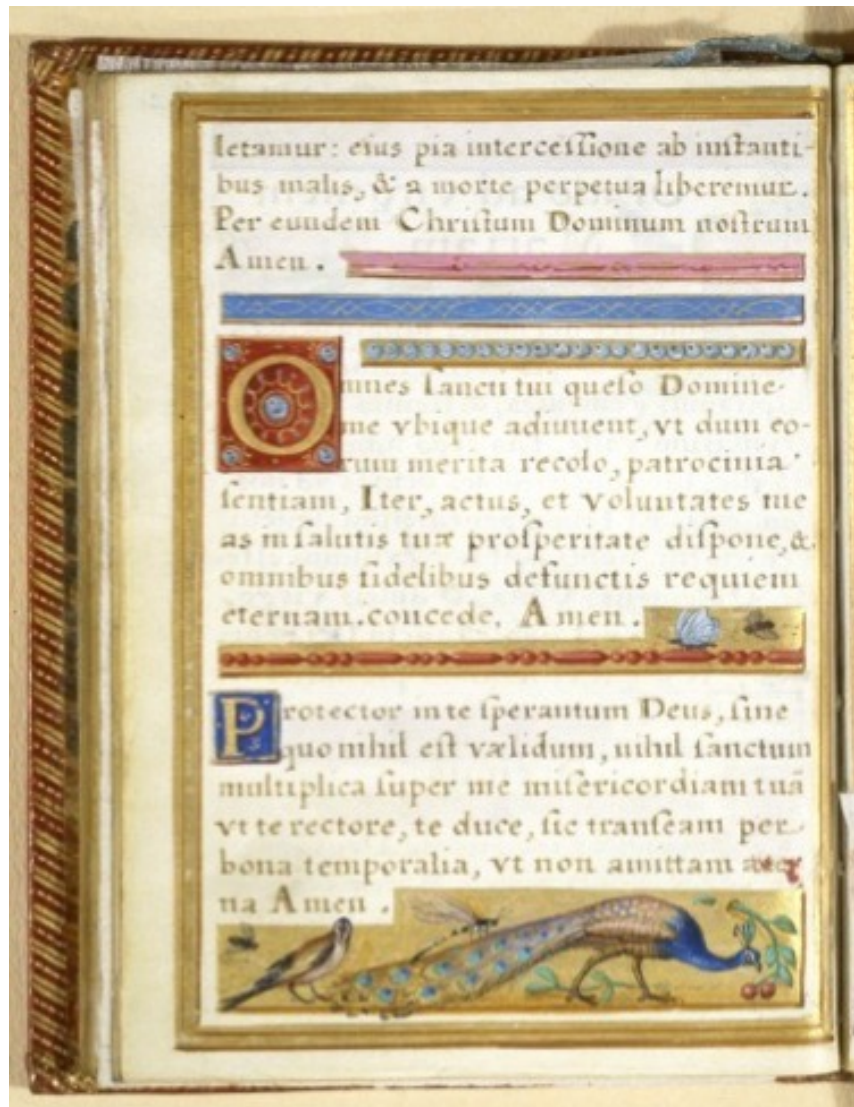 letamur: eius pia intercessione ab instanti-
bus malis, & a morte perpetua liberemur.
Per eundem Christum Dominum nostrum
Amen.
Omnes sancti tui queso Domine
me vbique adiuuent, vt dum eo-
rum merita recolo, patrocinia
sentiam, Iter, actus, et voluntates me
as in salutis tuæ prosperitate dispone, &
omnibus fidelibus defunctis requiem
eternam.concede. Amen.
Protector in te sperantum Deus, sine
quo nihil est vælidum, nihil sanctum
multiplica super me misericordiam tuã
vt te rectore, te duce, sic transeam per
bona temporalia, vt non amittam æter
na Amen.